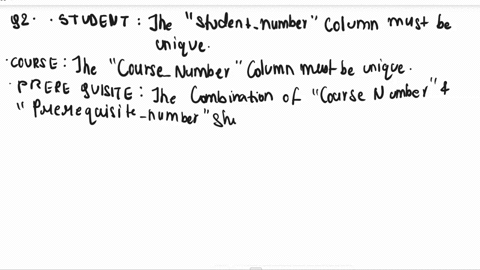 Q2. · STUDENT : The "Student_number" Column must be
unique.
· COURSE : The "Course_Number" Column must be unique.
· PREREQUISITE : The Combination of "Course Number" &
"Prerequisite_number" Shu